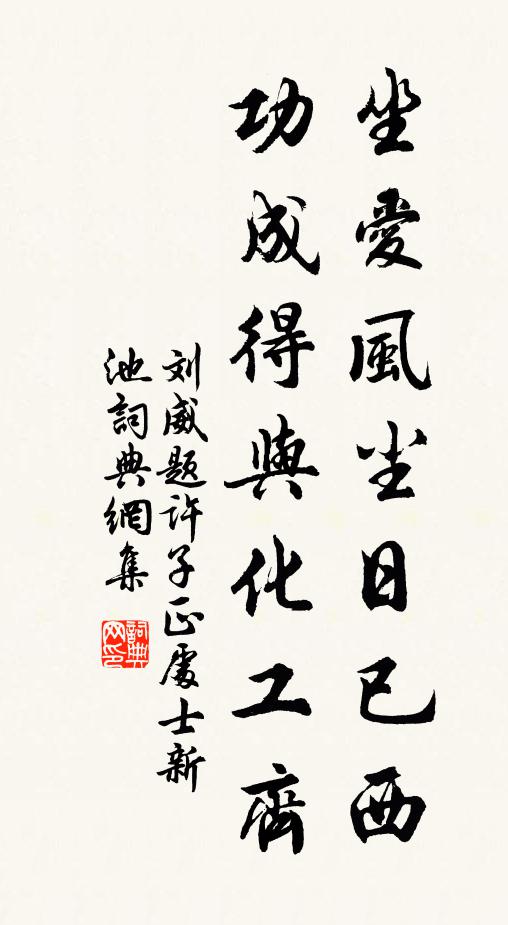 坐愛風尘日已西
功成得與化工齊
刘威题许子正處士新
池詞典網集
詞典
网印